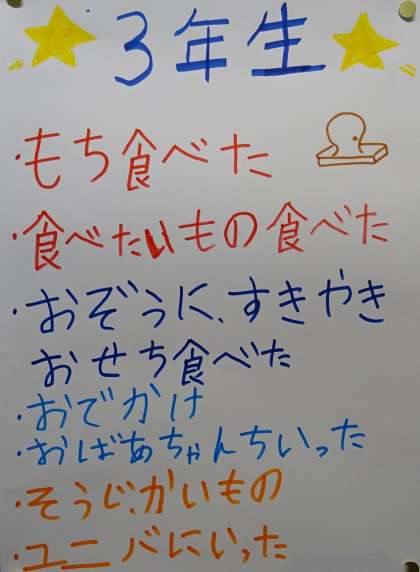 3年生
・もち食べた
・食べたいもの食べた
・おぞうに、すきやき
おせち食べた
・おでかけ
・おばあちゃんちいった
・そうじ、かいもの
・ユニバにいった